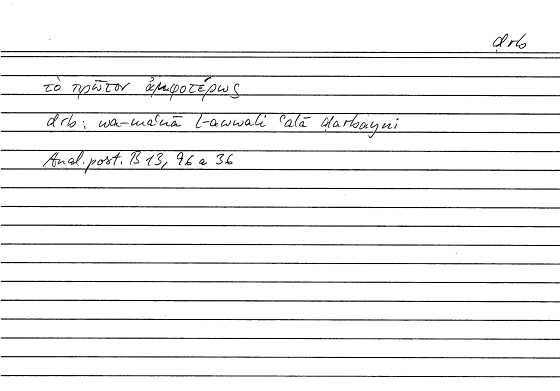 ḍrb
τὸ πρῶτον ἀμφοτέρως
ḍrb: wa-maʿnā l-awwali ʿalā ḍarbayni
Anal. post. B 13, 96 a 36